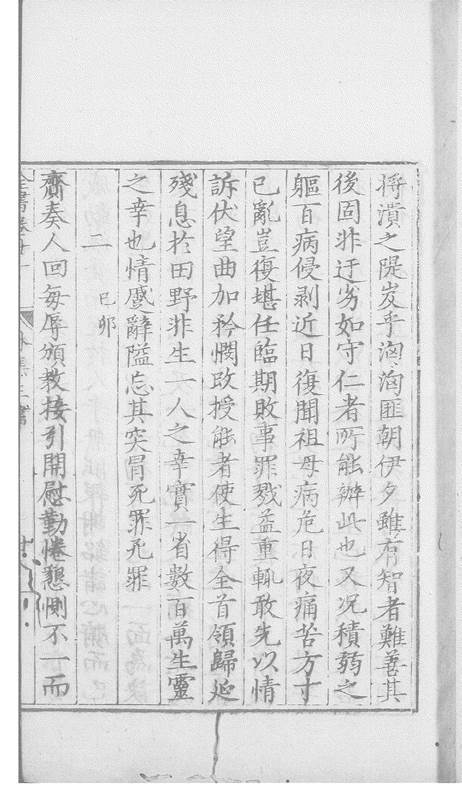 將潰之隄岌乎洶洶匪朝伊夕雖有智者難善其
後固非迂劣如守仁者所能辦此也又況積弱之
軀百病侵剥近日復聞祖母病危日夜痛苦方寸
已亂豈復堪任臨期敗事罪戮益重輒敢先以情
訴伏望曲加矜憫改授能者使生得全首領歸延
殘息於田野非生一人之幸實一省數百萬生靈
之幸也情蹙辭隘忘其突冒死罪死罪
二 己卯
齎奏人回每辱頒教接引開慰勤惓懇惻不一而
全書卷廿一 外集三 書